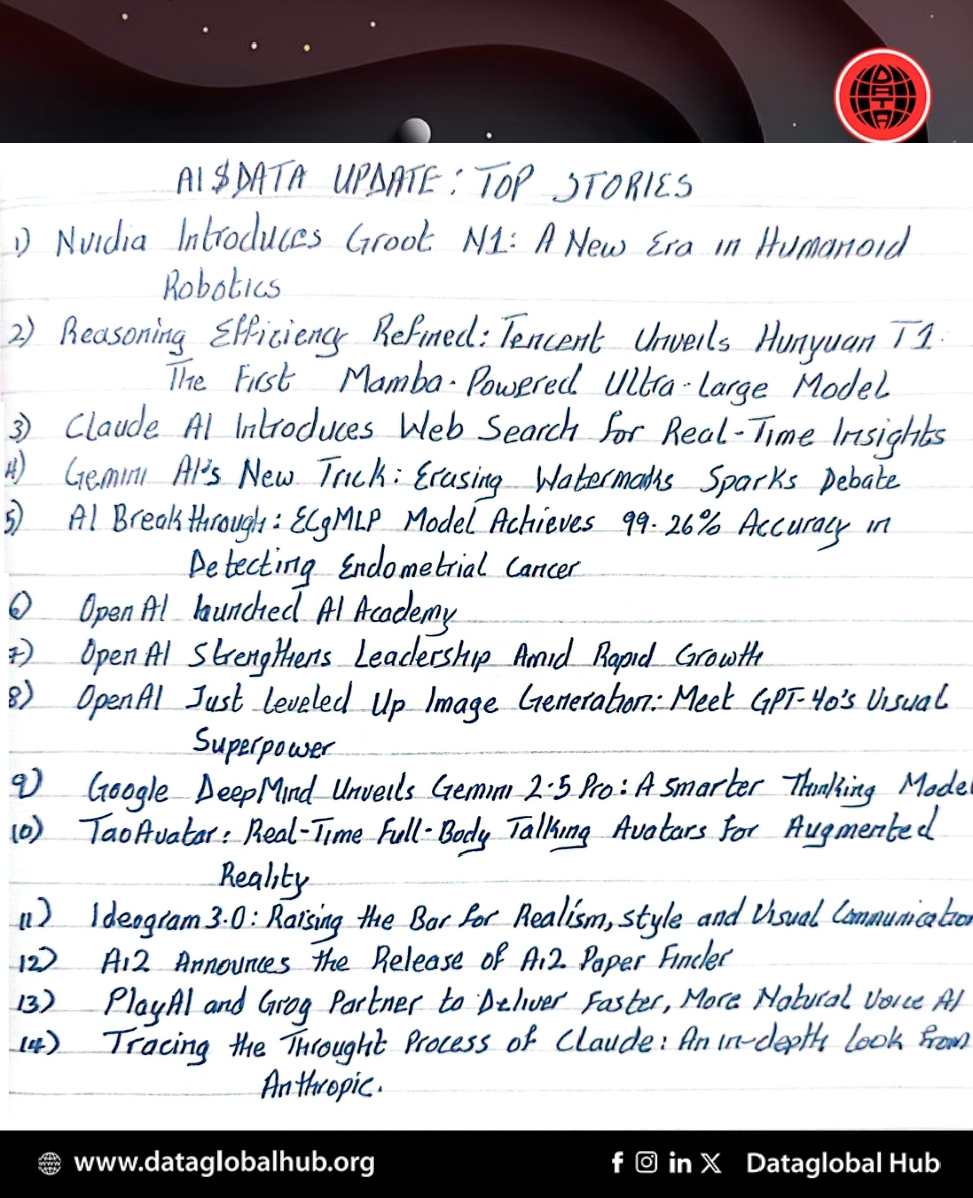 DATA
AI $ DATA UPDATE: TOP STORIES
1) Nvidia Introduces Groot N1: A New Era in Humanoid
Robotics
2) Reasoning Efficiency Refined: Tencent Unveils Hunyuan T1.
The First Mamba-Powered Ultra-Large Model
3) Claude AI Introduces Web Search for Real-Time Insights
4) Gemini AI's New Trick: Erasing Watermarks Sparks Debate
5) AI Breakthrough: ECgMLP Model Achieves 99.26% Accuracy in
Detecting Endometrial Cancer
6) Open AI launched AI Academy
7) Open AI Strengthens Leadership Amid Rapid Growth
8) OpenAI Just Leveled Up Image Generation: Meet GPT-4o's Visual
Superpower
9) Google DeepMind Unveils Gemini 2.5 Pro: A Smarter Thinking Model
10) TaoAvatar: Real-Time Full-Body Talking Avatars for Augmented
Reality
11) Ideogram 3.0: Raising the Bar for Realism, style and Visual Communication
12) Ai2 Announces the Release of Ai2 Paper Finder
13) PlayAI and Groq Partner to Deliver Faster, More Natural Voice AI
14) Tracing the Throught Process of Claude: An in-depth look from
Anthropic.
www.dataglobalhub.org
f in X Dataglobal Hub